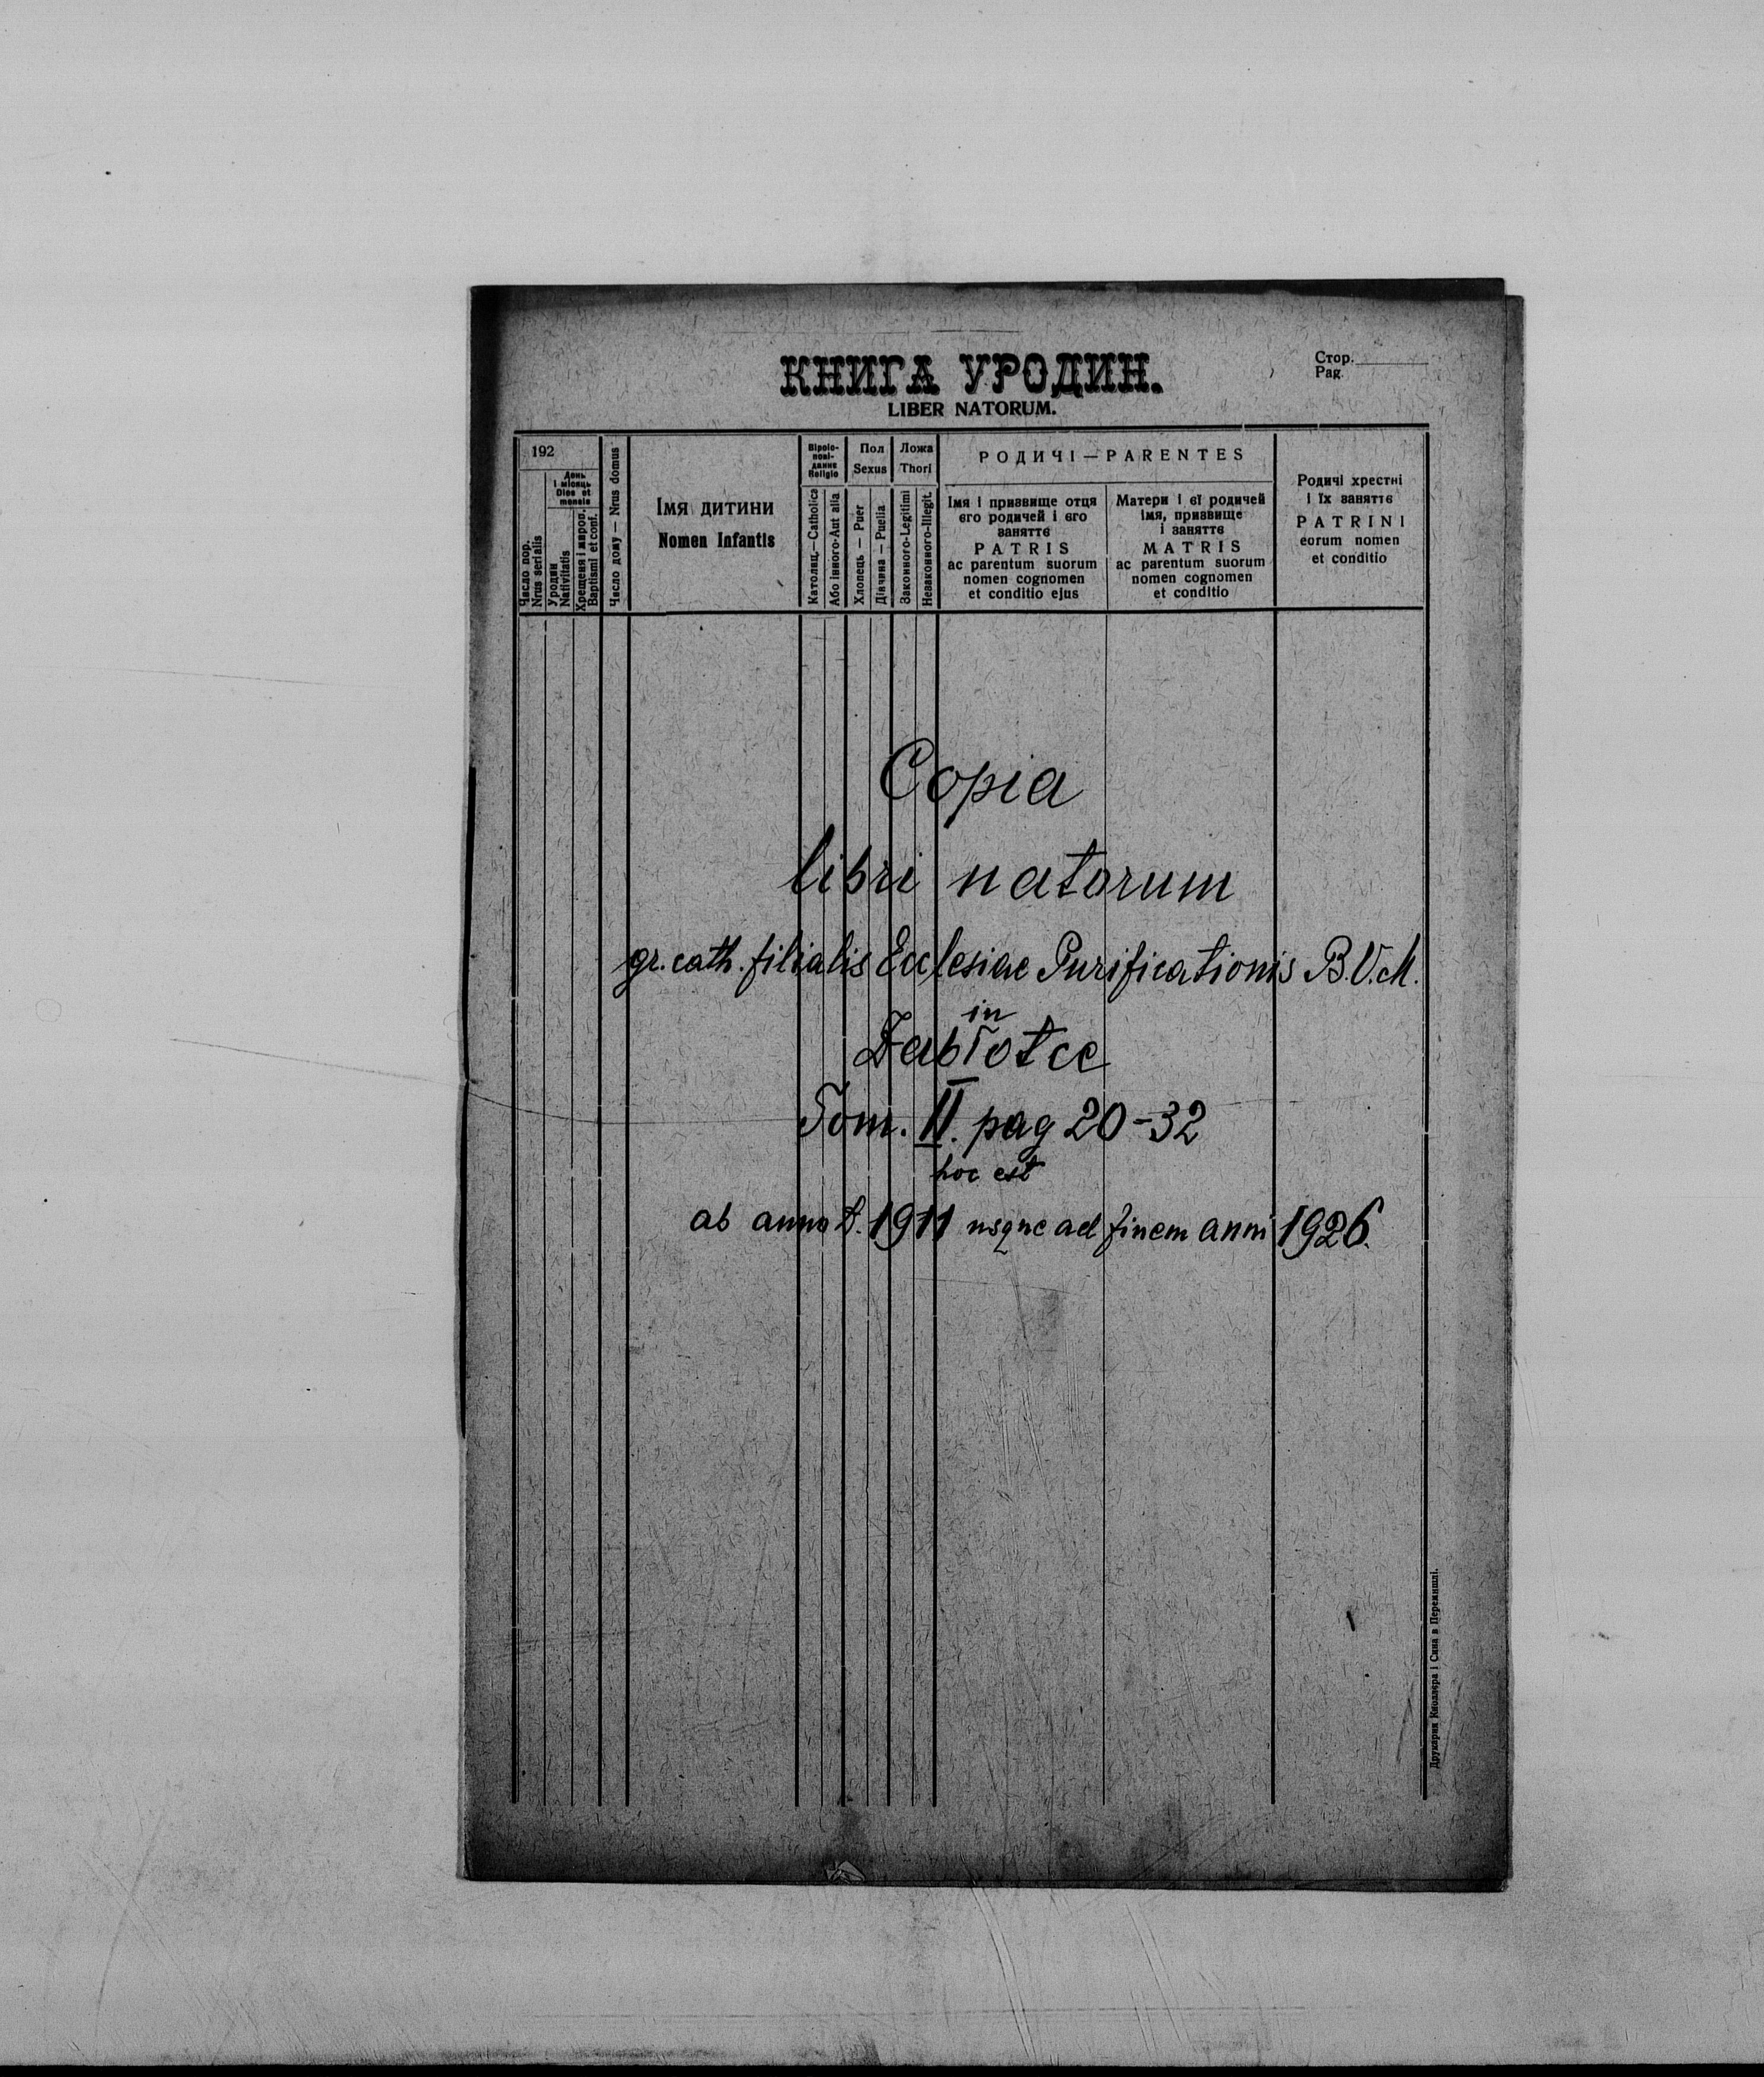 КНИГА УРОДИН.
LIBER NATORUM.
Стор.
Pag.
192
Число пор.
Nrus serialis
День
і місяць
Dies et
mensis
Уродин
Nativitatis
Хрещеня і миров.
Baptismi et conf.
Число дому — Nrus domus
Імя дитини
Nomen Infantis
Віроіс-
пові-
данне
Religio
Католиц.—Catholica
Або інного-Aut alia
Пол
Sexus
Хлопець — Puer
Дівчина — Puella
Ложа
Thori
Законного-Legitimi
Незаконного-Illegit.
РОДИЧІ — PARENTES
Імя і призвище отця
єго родичей і єго
заняттє
PATRIS
ac parentum suorum
nomen cognomen
et conditio ejus
Матери і єї родичей
імя, призвище
і заняттє
MATRIS
ac parentum suorum
nomen cognomen
et conditio
Родичі хрестні
і їх заняттє
PATRINI
eorum nomen
et conditio
Copia
libri natorum
gr. cath. filialis Ecclesiae Purificationis B.V.M.
in
Zabłotce
Tom. II. pag 20-32
hoc est
ab anno D. 1911 usque ad finem anni 1926.
Друкарня Кноллєра і Сина в Перемишлі.